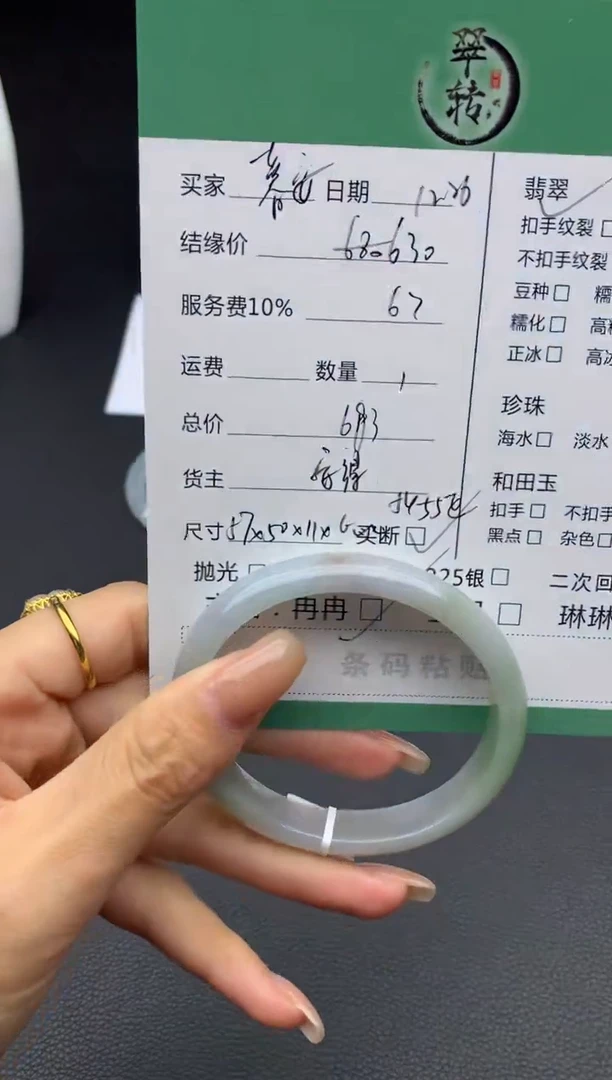 翠转
买家 日期 12.26
结缘价 680 630
服务费10% 67
运费 数量 1
总价 693
货主
尺寸 57x50x11x 买断□
抛光□ 925银□
冉冉□
条码粘贴
翡翠
扣手纹裂□
不扣手纹裂
豆种□ 糯
糯化□ 高
正冰□ 高冰
珍珠
海水□ 淡水
和田玉
扣手□ 不扣手
黑点□ 杂色□
二次回
琳琳